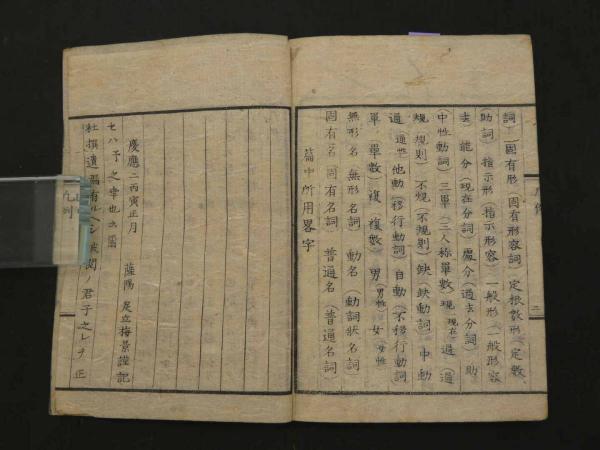 凡例
杜撰遺漏有ルヘシ 披閲 君子之レヲ正
セハ予之幸也
慶應二丙寅正月
薩陽 足立梅景謹記
篇中所用畧字
固有名 固有名詞 普通名 (普通名詞)
無形名 無形名詞 動名 (動詞狀名詞)
單 單數) 複 複數) 男 (男性) 女 女性
通 通性 他動 (移行動詞) 自動 (不移行動詞
規 規則) 不規 (不規則) 缺 (缺動詞) 中動
(中性動詞) 三單 (三人称單數) 現 現在) 過 (過
去) 能分 (現在分詞) 處分 (過去分詞) 助
(助詞) 指示形 (指示形容詞) 一般形 (一般形容
詞) 固有形 固有形容詞) 定根數形 (定數
二